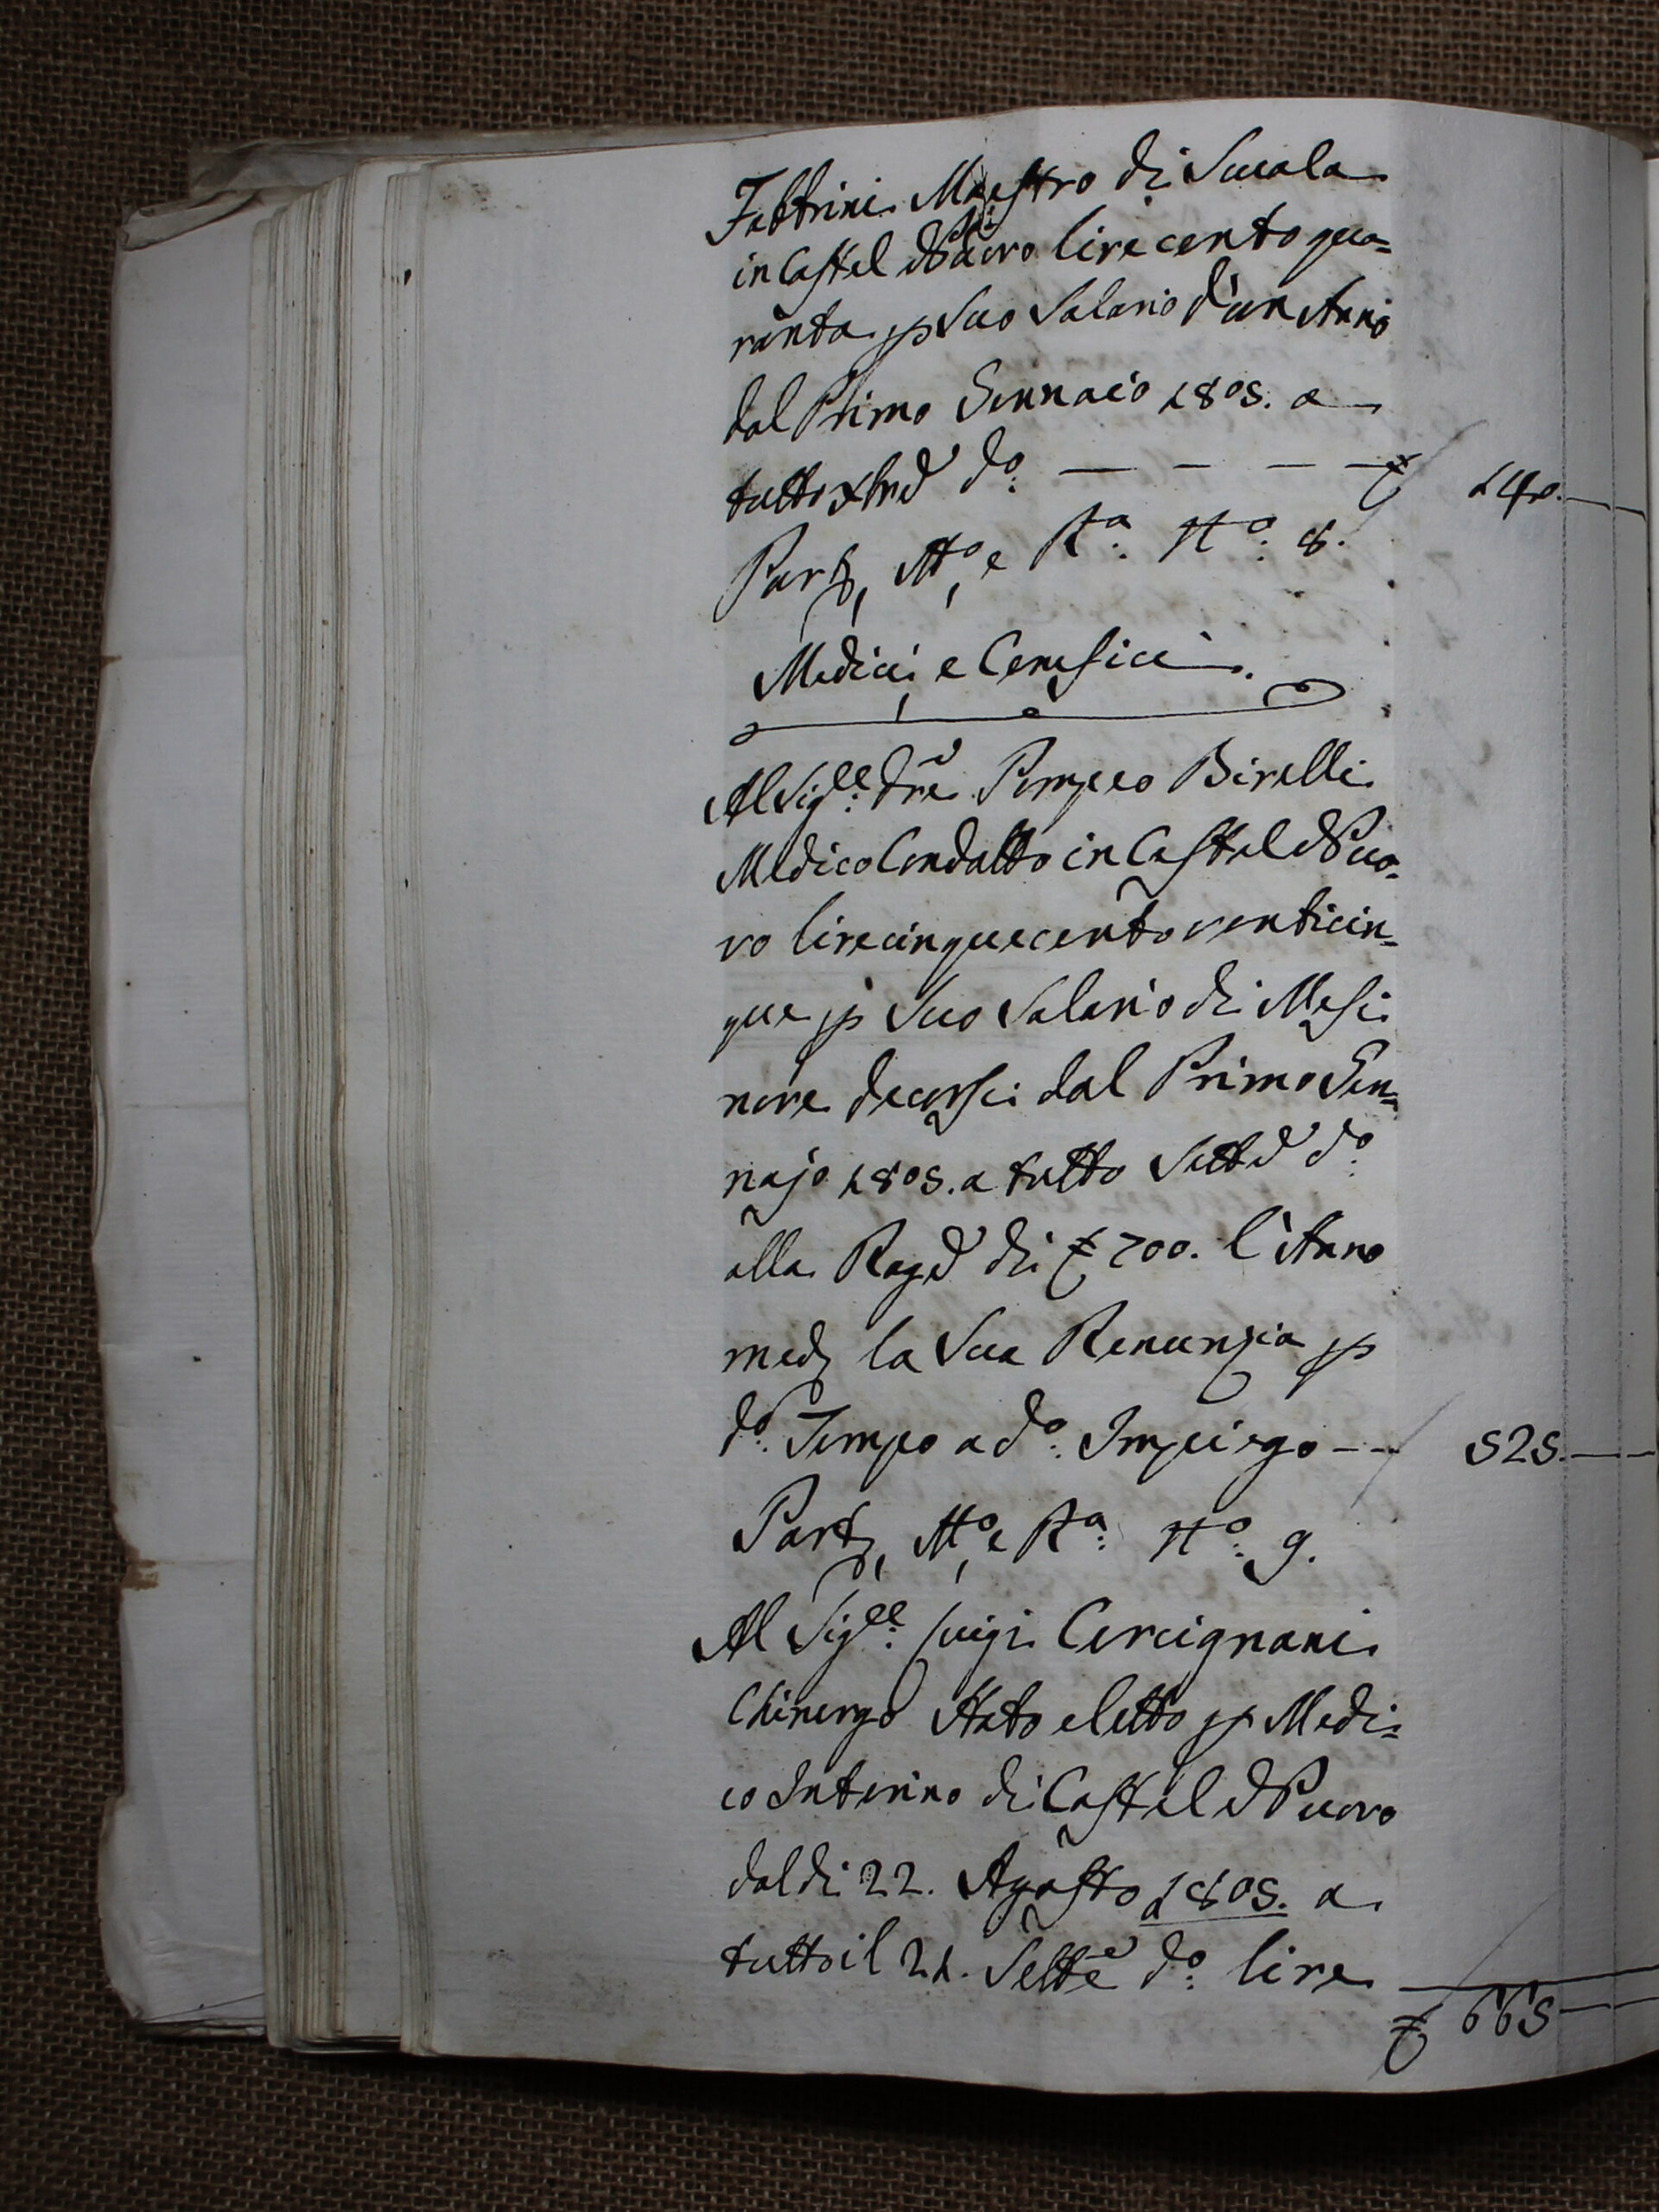 Fabbrini Maestro di Scuola
in Castel Nuovo lire cento qua=
ranta p Suo Salario d'un Anno
dal Primo Gennaio 1805. a
tutto Xbre do: — — — — £ 140. —
Part, Mo, e Ra: No: 8.
Medici, e Cerusici.
Al Sigre: Dre Pompeo Birelli
Medico Condotto in Castel Nuo=
vo lire cinquecento venticin=
que p Suo Salario di Mesi
nove decorsi dal Primo Gen=
najo 1805. a tutto Sette do:
alla Rage di £ 700. l'Anno
med, la Sua Renunzia p
do: Tempo a do: Impiego — — 525. —
Part, Mo, e Ra: No: 9.
Al Sigre: Luigi Cercignani
Chirurgo Stato eletto p Medi=
co Interino di Castel Nuovo
dal di 22. Agosto 1805. a
tutto il 21. Sette do: lire
£ 665 —